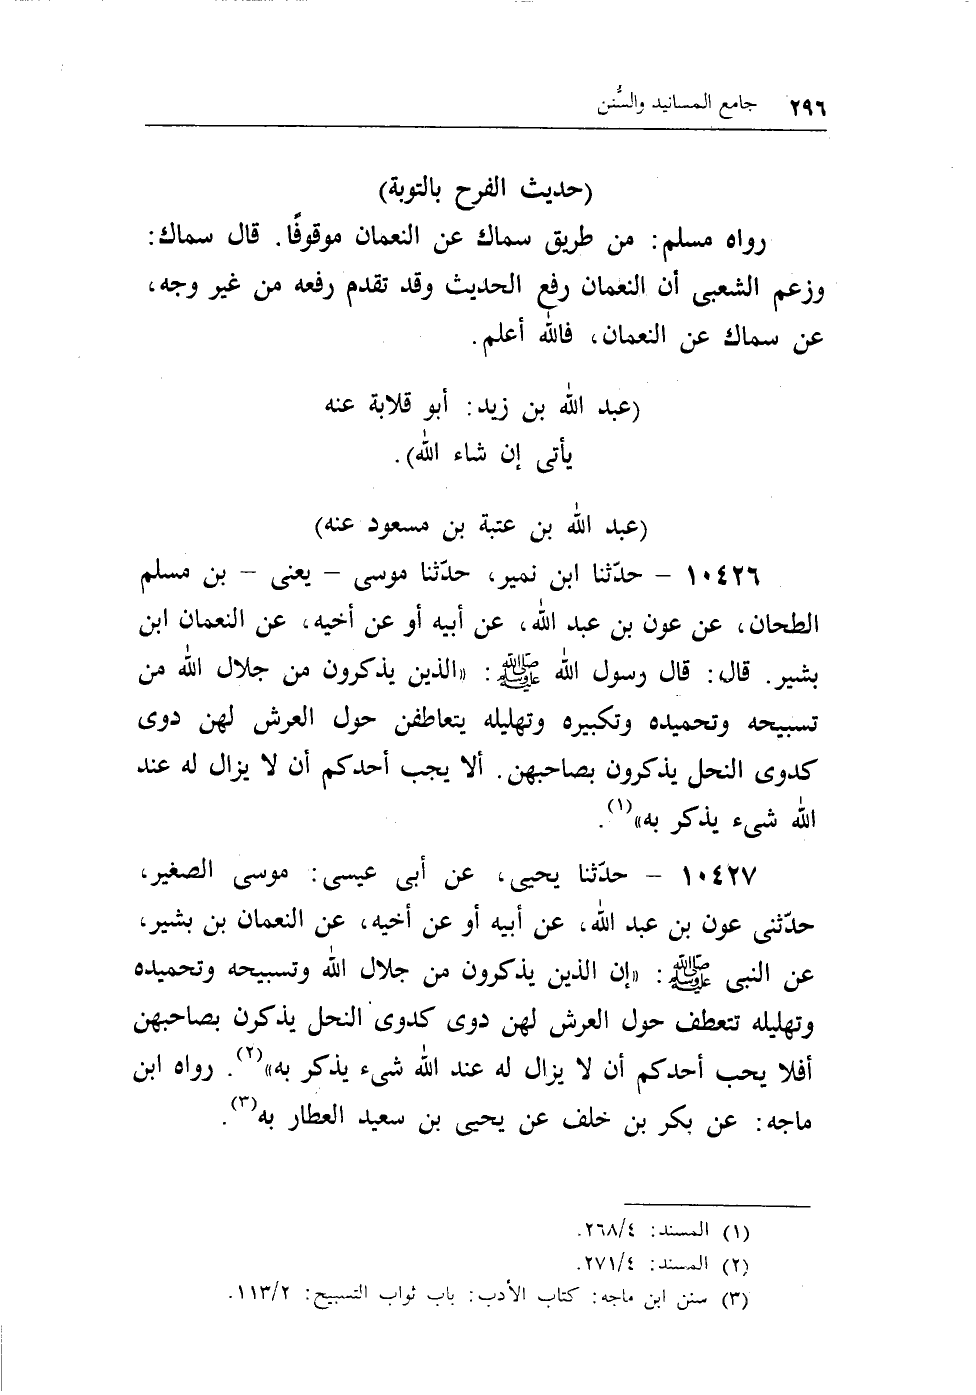 ٢٩٦ جامع المسانيد والسُّنن
(حديث الفرح بالتوبة)
رواه مسلم: من طريق سماك عن النعمان موقوفًا. قال سماك:
وزعم الشعبى أن النعمان رفع الحديث وقد تقدم رفعه من غير وجه،
عن سماك عن النعمان، فالله أعلم.
(عبد الله بن زيد: أبو قلابة عنه
يأتى إن شاء الله).
(عبد الله بن عتبة بن مسعود عنه)
١٠٤٢٦ – حدّثنا ابن نمير، حدّثنا موسى – يعنى – بن مسلم
الطحان، عن عون بن عبد الله، عن أبيه أو عن أخيه، عن النعمان ابن
بشير. قال: قال رسول الله ﷺ: «الذين يذكرون من جلال الله من
تسبيحه وتحميده وتكبيره وتهليله يتعاطفن حول العرش لهن دوى
كدوى النحل يذكرون بصاحبهن. ألا يجب أحدكم أن لا يزال له عند
الله شىء يذكر به»(١).
١٠٤٢٧ – حدّثنا يحيى، عن أبى عيسى: موسى الصغير،
حدّثنى عون بن عبد الله، عن أبيه أو عن أخيه، عن النعمان بن بشير،
عن النبى ﷺ: «إن الذين يذكرون من جلال الله وتسبيحه وتحميده
وتهليله تتعطف حول العرش لهن دوى كدوى النحل يذكرن بصاحبهن
أفلا يحب أحدكم أن لا يزال له عند الله شىء يذكر به»(٢). رواه ابن
ماجه: عن بكر بن خلف عن يحيى بن سعيد العطار به(٣).
(١) المسند: ٢٦٨/٤.
(٢) المسند: ٢٧١/٤.
(٣) سنن ابن ماجه: كتاب الأدب: باب ثواب التسبيح: ١١٣/٢.